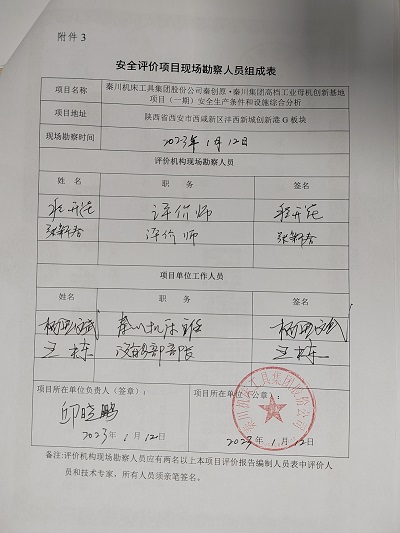 附件 3
安全评价项目现场勘察人员组成表
项目名称 秦川机床工具集团股份公司秦创原·秦川集团高档工业母机创新基地
项目（一期）安全生产条件和设施综合分析
项目地址 陕西省西安市西咸新区沣西新城创新港 G 板块
现场勘察时间 2023年1月12日
评价机构现场勘察人员
姓 名 职 务 签名
评价师
评价师
项目单位工作人员
姓名 职 务 签名
王栋 设备部部长 王栋
项目所在单位负责人（签章）： 项目所在单位（公章）：
邱晓鹏
2023年1月12日 2023年1月12日
备注:评价机构现场勘察人员应有两名以上本项目评价报告编制人员表中评价人
员和技术专家，所有人员须亲笔签名。